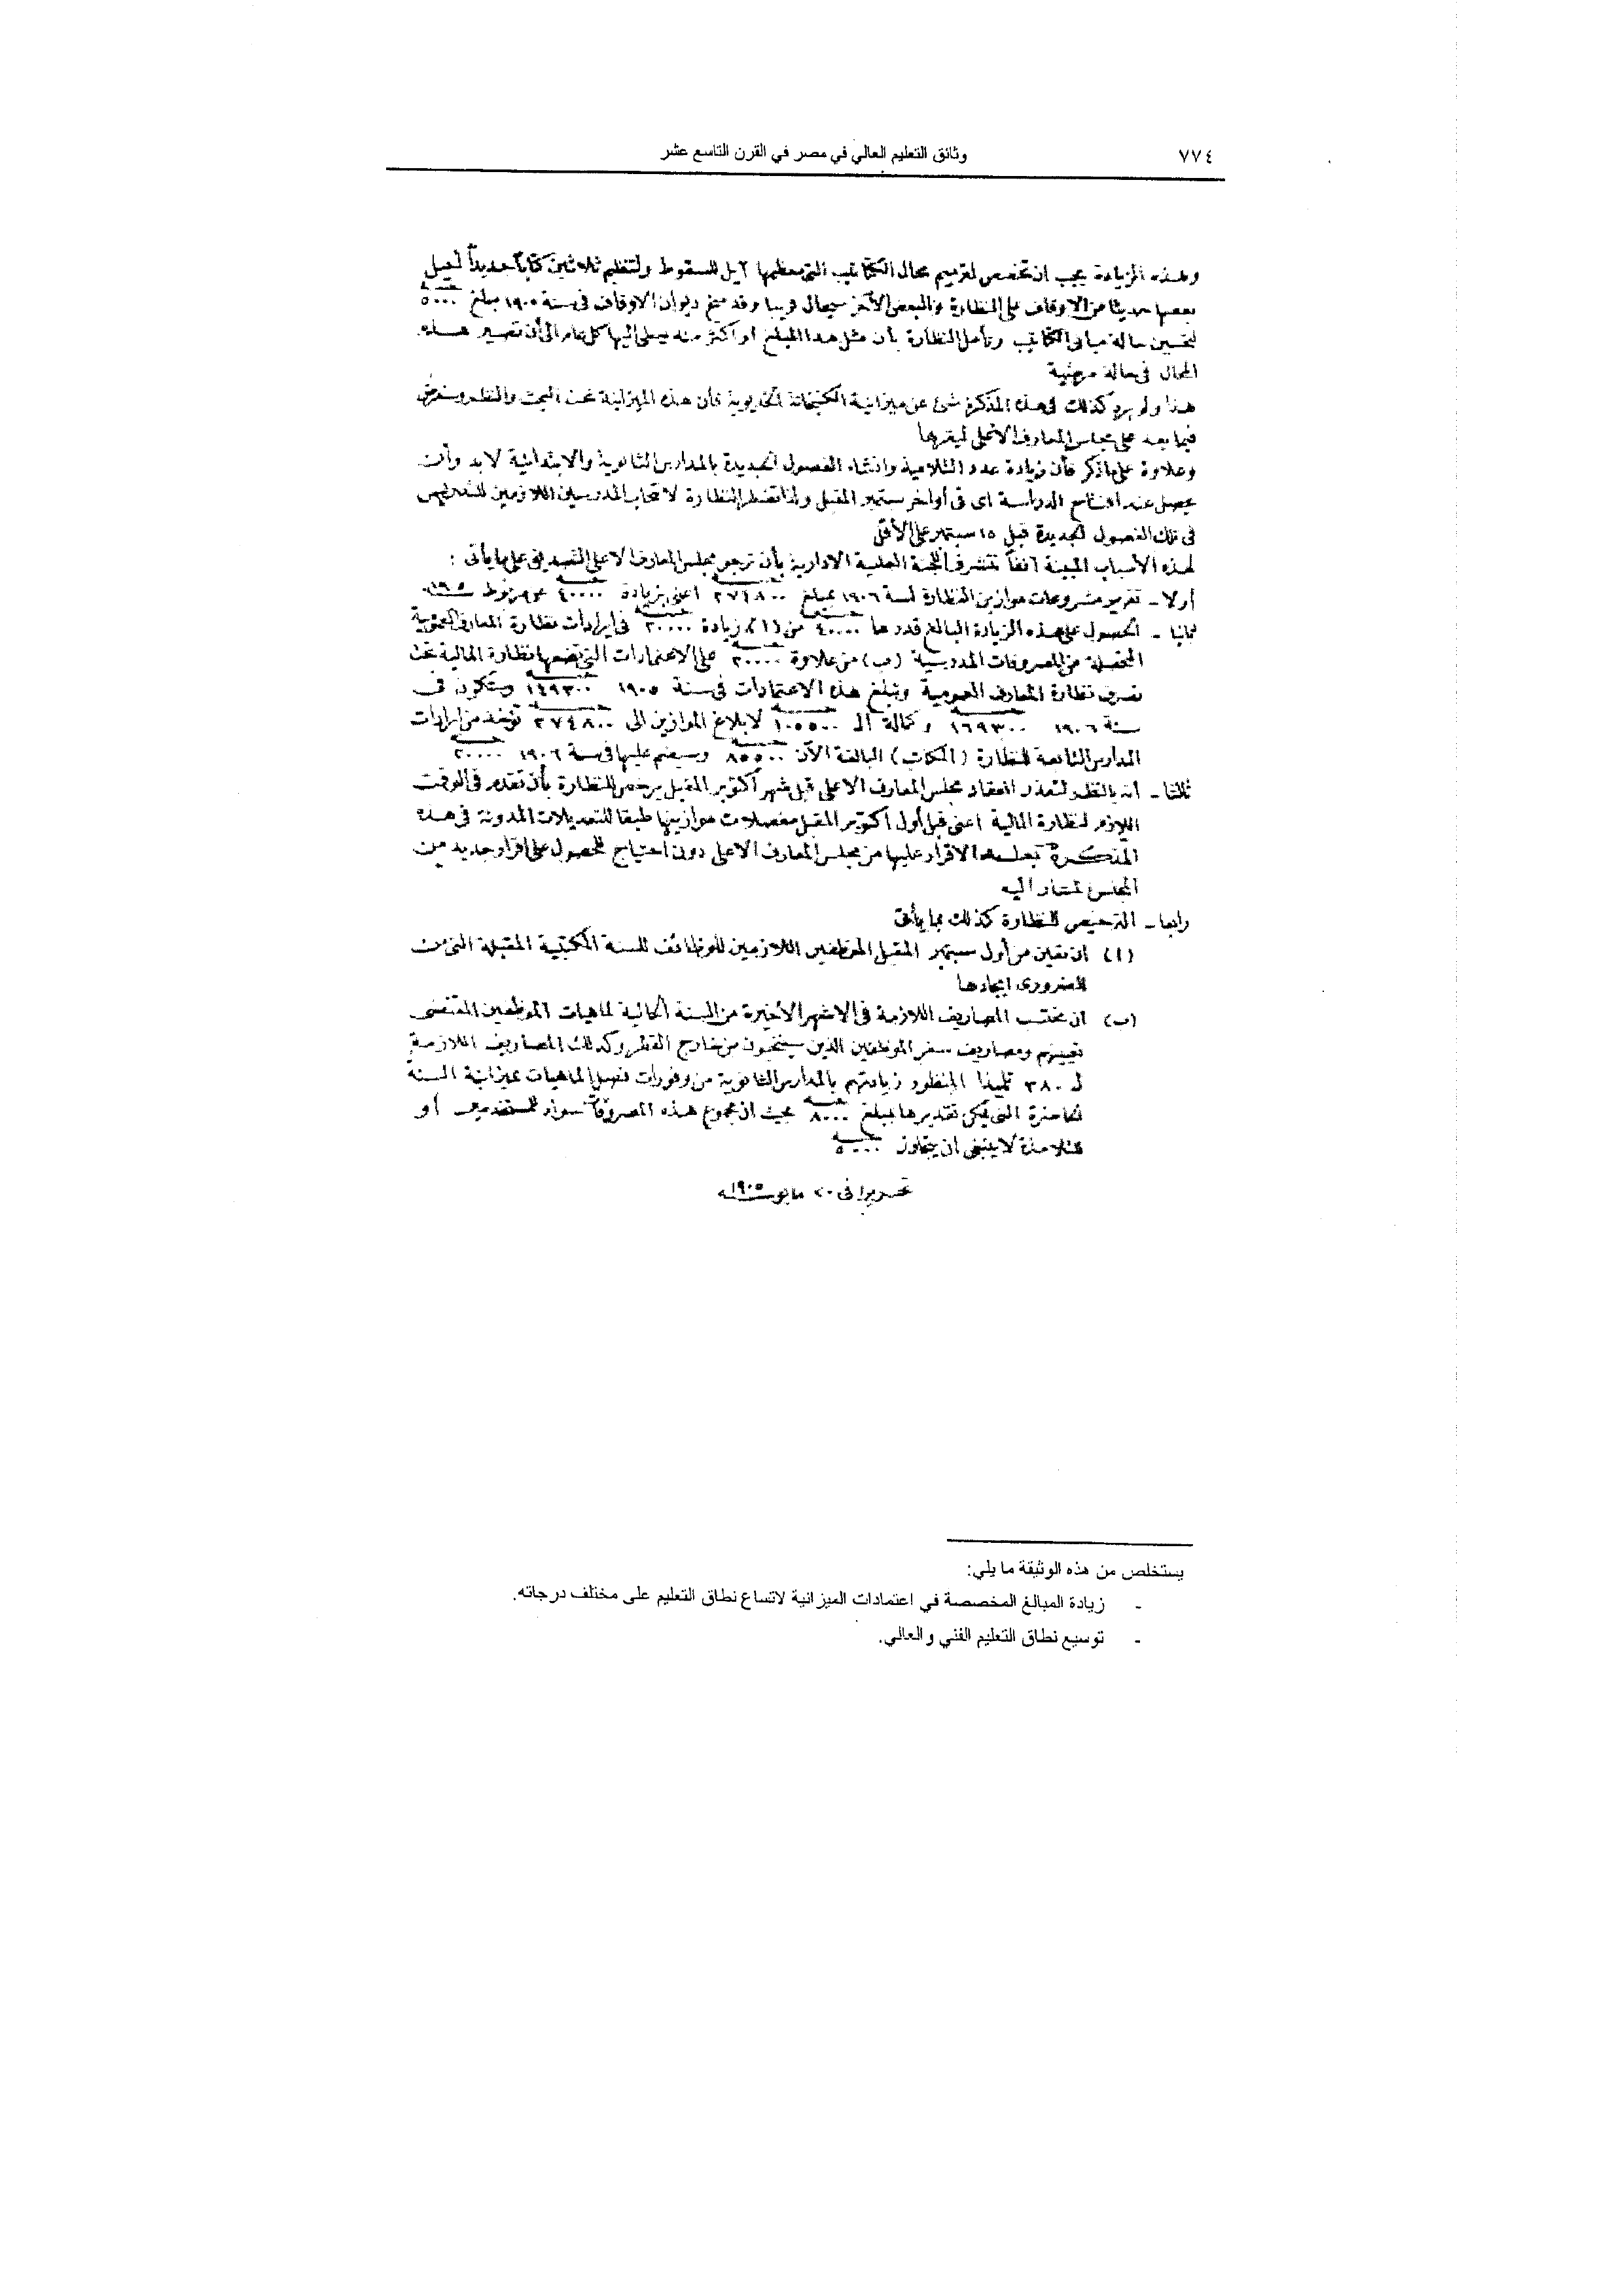 ٧٧٤
وثائق التعليم العالي في مصر في القرن التاسع عشر
وهذه الزيادة يجب ان تخصص لترميم محال الكتاتيب التى معظمها آيل للسقوط ولتنظيم ثلاثين كتاباً جديداً أحيل
بعضها حديثا من الاوقاف على النظارة والبعض الآخر سيحال قريبا وقد منح ديوان الاوقاف فى سنة ١٩٠٥ مبلغ ٥٠٠٠ جنيه
لتحسين حالة مبانى الكتاتيب وتأمل النظارة بأن مثل هذا المبلغ او اكثر منه سيعطى اليها كل عام الى أن تصير هذه
المحال فى حالة مرضية
هذا ولم يرد كذلك فى هذه المذكرة شئ عن ميزانية الكتبخانة الخديوية فأن هذه الميزانية تحت البحث والنظر وستعرض
فيما بعد على مجلس المعارف الاعلى ليقرها
وعلاوة على ما ذكر فأن زيادة عدد التلاميذ وانشاء الفصول الجديدة بالمدارس الثانوية والابتدائية لابد وأن
يحصل عند افتتاح الدراسة اى فى أواخر سبتمبر المقبل ولذا تضطر النظارة لانتخاب المدرسين اللازمين للتدريس
فى تلك الفصول الجديدة قبل ١٥ سبتمبر على الأقل
لهذه الأسباب المبينة آنفاً تتشرف اللجنة العلمية الادارية بأن ترجو مجلس المعارف الاعلى التصديق على ما يأتى :
أولا - تقرير مشروعات موازين النظارة لسنة ١٩٠٦ بمبلغ ٢٧٤٨٠٠ جنيه اعنى بزيادة ٤٠٠٠٠ جنيه عن مربوط سنة ١٩٠٥
ثانيا - الحصول على هذه الزيادة البالغ قدرها ٤٠٠٠٠ جنيه من (ا) زيادة ٢٠٠٠٠ جنيه فى ايرادات نظارة المعارف العمومية
المتحصلة من المصروفات المدرسية (ب) من علاوة ٢٠٠٠٠ جنيه على الاعتمادات التى تضعها نظارة المالية تحت
تصرف نظارة المعارف العمومية وتبلغ هذه الاعتمادات فى سنة ١٩٠٥ ١٤٩٣٠٠ جنيه وستكون فى
سنة ١٩٠٦ ١٦٩٣٠٠ جنيه وتكملة الـ ١٠٥٥٠٠ جنيه لابلاغ الموازين الى ٢٧٤٨٠٠ جنيه تؤخذ من ايرادات
المدارس التابعة للنظارة (المكاتب) البالغة الآن ٨٥٥٠٠ جنيه وسيضم عليها فى سنة ١٩٠٦ ٢٠٠٠٠ جنيه
ثالثا - أنه بالنظر لتعذر انعقاد مجلس المعارف الاعلى قبل شهر اكتوبر المقبل يرخص للنظارة بأن تقدم فى الوقت
اللازم لنظارة المالية اعنى قبل أول اكتوبر المقبل مفصلات موازينها طبقا للتعديلات المدونة فى هذه
المذكرة بعد الاقرار عليها من مجلس المعارف الاعلى دون احتياج للحصول على اقرار جديد من
المجلس المشار اليه
رابعا - الترخيص للنظارة كذلك بما يأتى
(ا) ان تعين من أول سبتمبر المقبل الموظفين اللازمين للوظائف للسنة المكتبية المقبلة التى من
الضرورى ايجادها
(ب) ان تحتسب المصاريف اللازمة فى الاشهر الأخيرة من السنة الحالية لماهيات الموظفين المقتضى
تعيينهم ومصاريف سفر الموظفين الذين سينتخبون من خارج القطر وكذلك المصاريف اللازمة
لـ ٣٨٠ تلميذا المنظور زيادتهم بالمدارس الثانوية من وفورات فصل الماهيات بميزانية السنة
الحاضرة التى يمكن تقديرها بمبلغ ٨٠٠٠ جنيه بحيث ان مجموع هذه المصروفات سواء للمستخدمين أو
للتلامذة لا ينبغى ان يتجاوز جنيه
تحريرا فى ٢٠ مايو سنة ١٩٠٥
يستخلص من هذه الوثيقة ما يلي:
- زيادة المبالغ المخصصة في اعتمادات الميزانية لاتساع نطاق التعليم على مختلف درجاته.
- توسيع نطاق التعليم الفني والعالي.